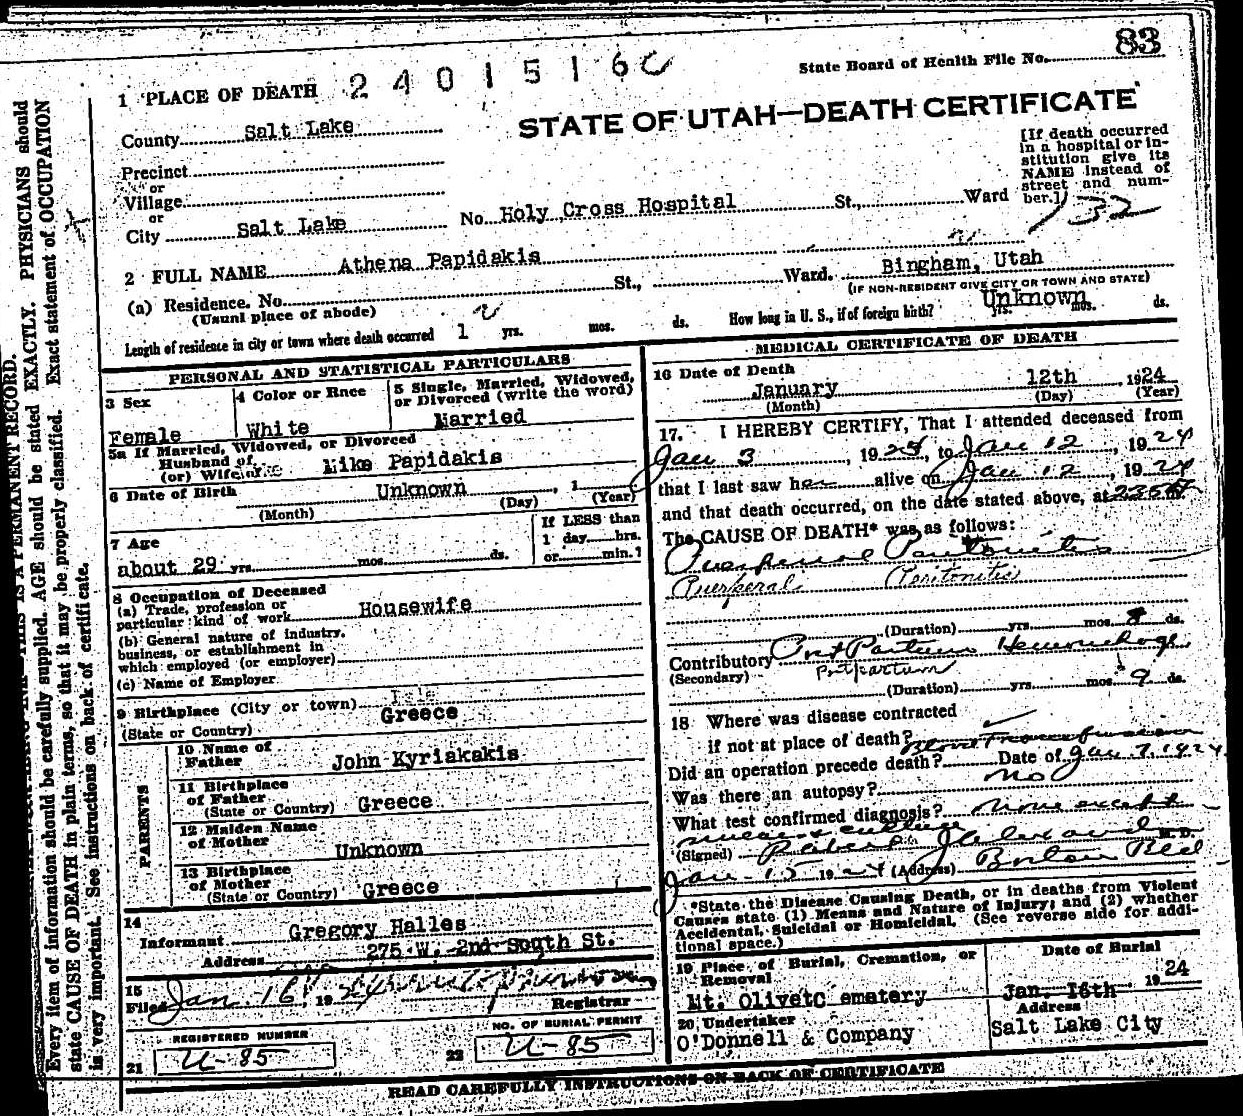 83
State Board of Health File No.
1 PLACE OF DEATH 2 4 0 1 5 1 6 0
STATE OF UTAH—DEATH CERTIFICATE
County Salt Lake
[If death occurred in a hospital or institution give its NAME instead of street and number.]
132
Precinct
or
Village
or
City Salt Lake No. Holy Cross Hospital St., Ward
2 FULL NAME Athena Papidakis
(a) Residence. No. St., Ward. Bingham, Utah
(Usual place of abode) (IF NON-RESIDENT GIVE CITY OR TOWN AND STATE)
Length of residence in city or town where death occurred 1 yrs. mos. ds. How long in U. S., if of foreign birth? Unknown yrs. mos. ds.
PERSONAL AND STATISTICAL PARTICULARS
3 Sex
Female
4 Color or Race
White
5 Single, Married, Widowed, or Divorced (write the word)
Married
5a If Married, Widowed, or Divorced
Husband of
(or) Wife of Mike Papidakis
6 Date of Birth Unknown , 1
(Month) (Day) (Year)
7 Age
about 29 yrs. mos. ds.
If LESS than
1 day hrs.
or min.?
8 Occupation of Deceased
(a) Trade, profession or
particular kind of work Housewife
(b) General nature of industry,
business, or establishment in
which employed (or employer)
(c) Name of Employer
9 Birthplace (City or town)
(State or Country) Greece
PARENTS
10 Name of
Father John Kyriakakis
11 Birthplace
of Father
(State or Country) Greece
12 Maiden Name
of Mother
Unknown
13 Birthplace
of Mother
(State or Country) Greece
14
Informant Gregory Halles
Address 275 W. 2nd South St.
15
Filed Jan 16 , 1924
Registrar
REGISTERED NUMBER
21 U-85
NO. OF BURIAL PERMIT
22 U-85
MEDICAL CERTIFICATE OF DEATH
16 Date of Death
January 12th , 1924
(Month) (Day) (Year)
17. I HEREBY CERTIFY, That I attended deceased from
Jan 3 , 1924, to Jan 12 , 1924
that I last saw her alive on Jan 12 , 1924
and that death occurred, on the date stated above, at 235
The CAUSE OF DEATH* was as follows:
Puerperal Peritonitis
Puerperal Peritonitis
(Duration) yrs. mos. 8 ds.
Contributory Post Partum Hemorrhage
(Secondary) Postpartum
(Duration) yrs. mos. 9 ds.
18 Where was disease contracted
if not at place of death?
Blood Transfusion
Did an operation precede death? Date of Jan 7, 1924
Was there an autopsy? no
What test confirmed diagnosis? None except
smear & culture
(Signed) M. D.
Jan 15 1924 (Address) Boston Bld
*State the Disease Causing Death, or in deaths from Violent
Causes state (1) Means and Nature of Injury; and (2) whether
Accidental, Suicidal or Homicidal. (See reverse side for additional space.)
19 Place of Burial, Cremation, or
Removal
Mt. Olivetc emetery
Date of Burial
Jan 16th 1924
20 Undertaker
O'Donnell & Company
Address
Salt Lake City
READ CAREFULLY INSTRUCTIONS ON BACK OF CERTIFICATE
THIS IS A PERMANENT RECORD.
Every item of information should be carefully supplied. AGE should be stated EXACTLY. PHYSICIANS should
state CAUSE OF DEATH in plain terms, so that it may be properly classified. Exact statement of OCCUPATION
is very important. See instructions on back of certificate.